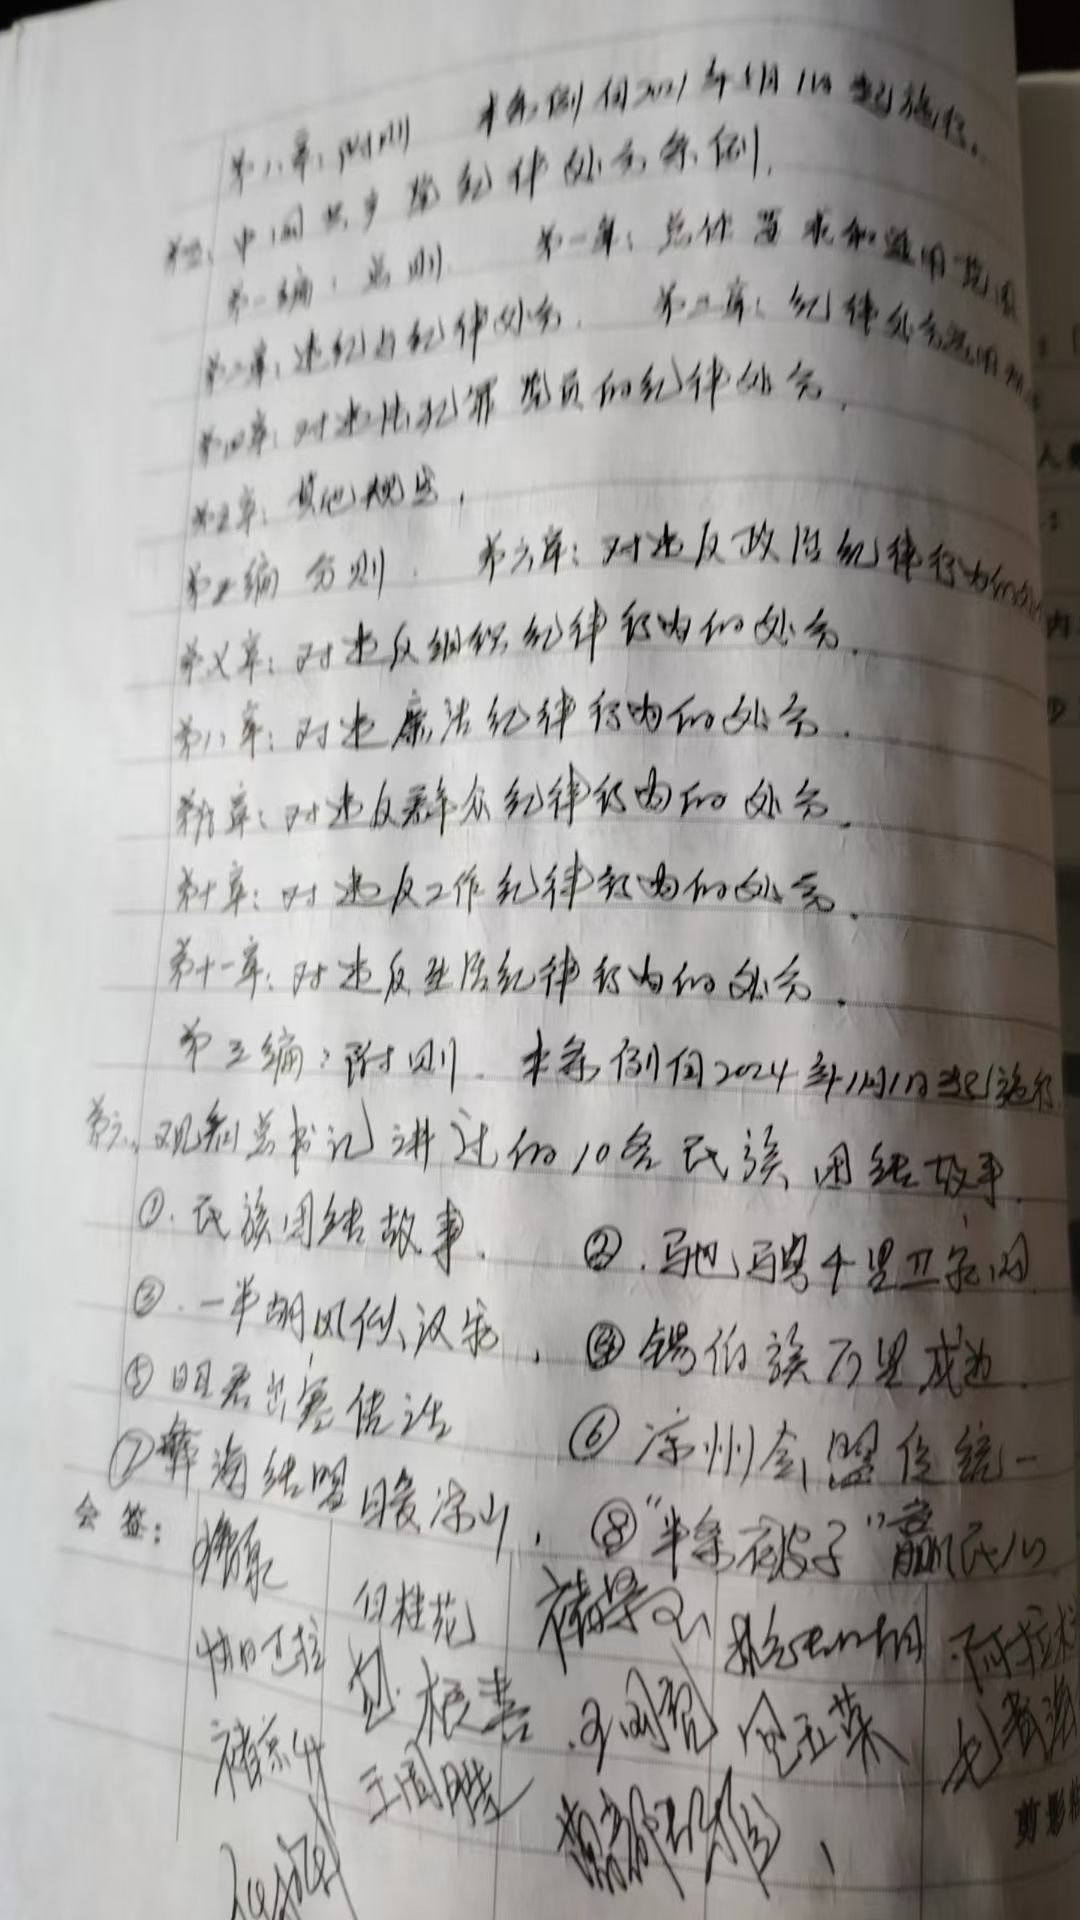 第八章:附则 本条例自2021年1月1日起施行。
第五:中国共产党纪律处分条例.
第一编:总则 第一章:总体要求和适用范围
第二章:违纪与纪律处分. 第三章:纪律处分运用
第四章:对违法犯罪党员的纪律处分.
第五章:其他规定,
第二编 分则. 第六章:对违反政治纪律行为的
第七章:对违反组织纪律行为的处分.
第八章:对违廉洁纪律行为的处分.
第九章:对违反群众纪律行为的处分.
第十章:对违反工作纪律行为的处分.
第十一章:对违反生活纪律行为的处分.
第三编:附则. 本条例自2024年1月1日起施行
第六、观看总书记讲过的10各民族团结故事.
①.民族团结故事. ②.马也马骋千里卫家国
③.一半胡风似汉家, ④锡伯族万里戍边.
⑤昭君出塞佳话 ⑥凉州会盟促统一
⑦彝海结盟暖凉山, ⑧“半条被子”赢民心
会签:
白桂花
包 根善
王国胜
包玉荣
剪影